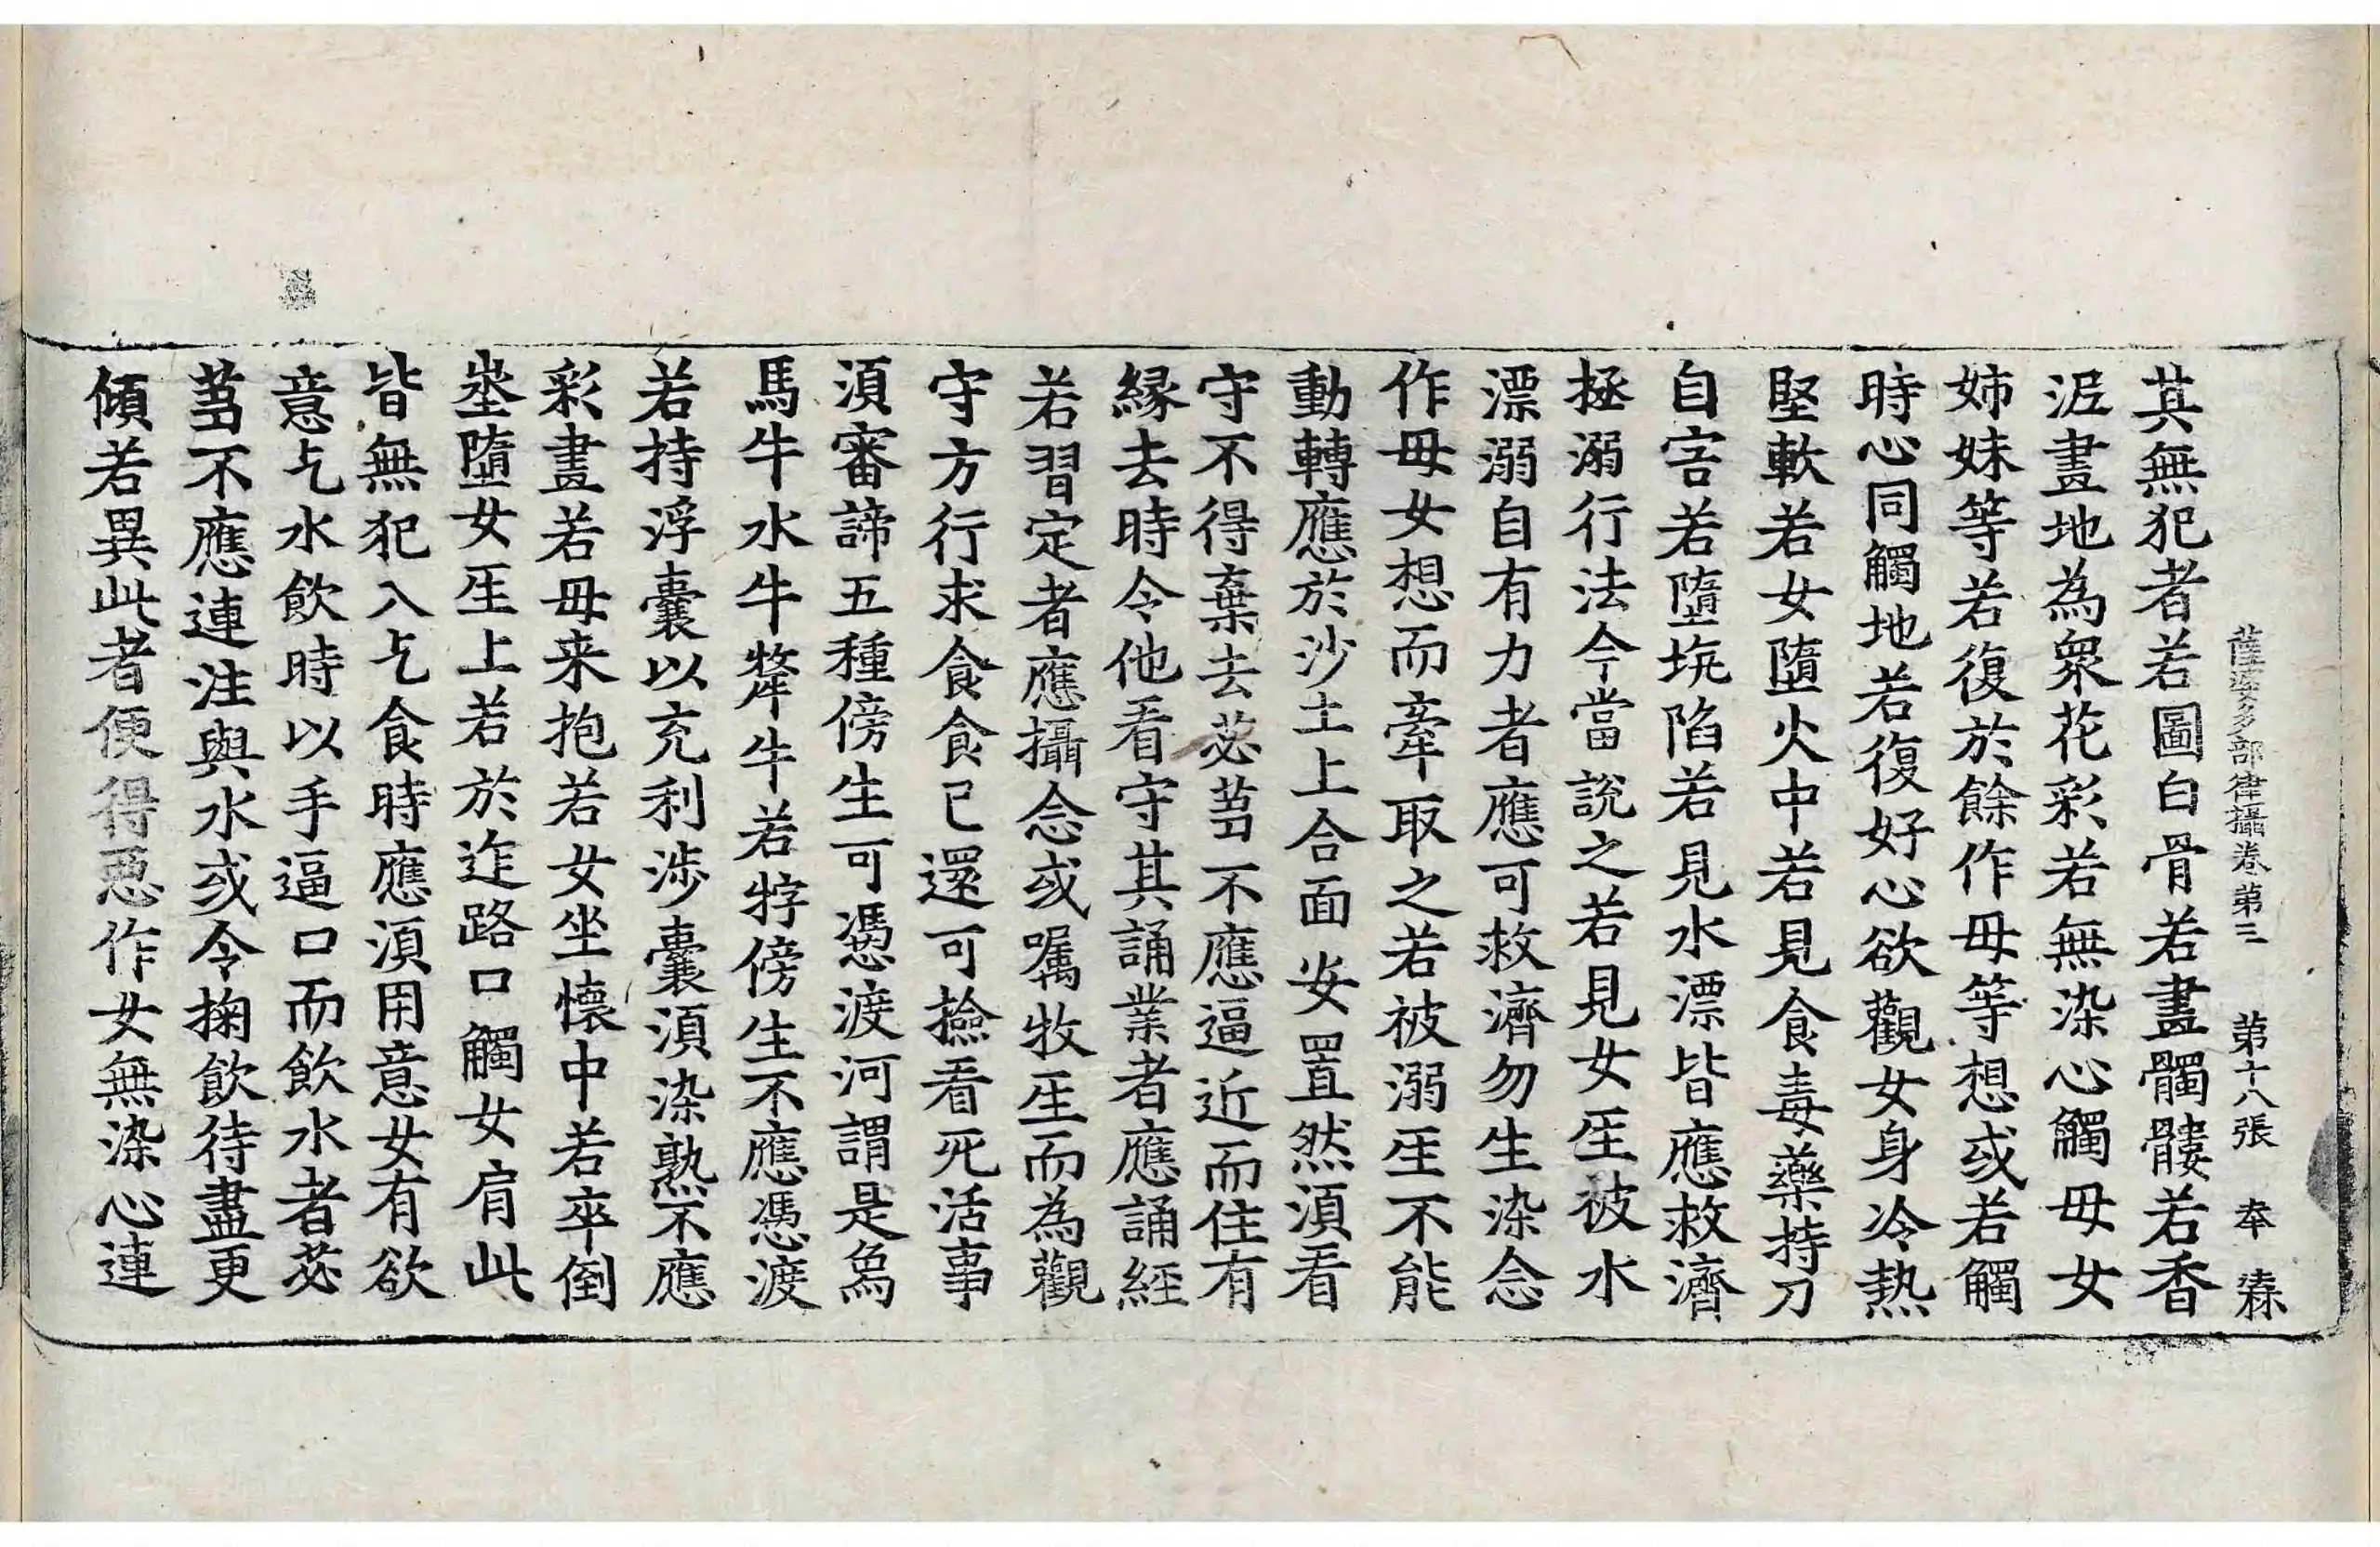 薩婆多部律攝卷第三 第十八張 奉
其無犯者若圖白骨若畫髑髏若香
泥畫地為衆花彩若無染心觸母女
姉妹等若復於餘作母等想或若觸
時心同觸地若復好心欲觀女身冷熱
堅軟若女墮火中若見食毒藥持刀
自害若墮坑陷若見水漂皆應救濟
拯溺行法今當說之若見女𤯔被水
漂溺自有力者應可救濟勿生染念
作母女想而牽取之若被溺𤯔不能
動轉應於沙土上合面安置然須看
守不得棄去苾𦮖不應逼近而住有
緣去時令他看守其誦業者應誦經
若習定者應攝念或囑牧𤯔而為觀
守方行求食食已還可撿看死活事
須審諦五種傍生可憑渡河謂是象
馬牛水牛犛牛若牸傍生不應憑渡
若持浮囊以充利涉囊須染熟不應
彩畫若母来抱若女坐懷中若卒倒
埊墮女𤯔上若於迮路口觸女肩此
皆無犯入乞食時應須用意女有欲
意乞水飲時以手逼口而飲水者苾
𦮖不應連注與水或令掬飲待盡更
傾若異此者便得惡作女無染心連